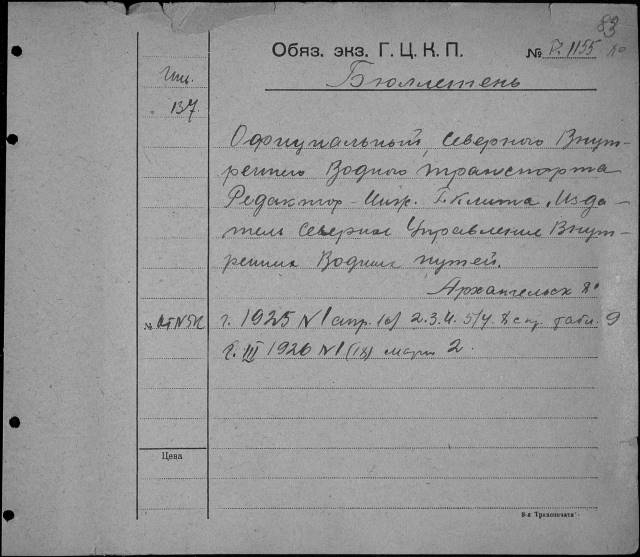 83
Обяз. экз. Г. Ц. К. П. № Р. 1155
Бюллетень
Шц.
137
Официальный Северного Внут-
реннего Водного транспорта
Редактор - Инж. Г. Клита. Изда-
тель Северное Управление Внут-
ренних Водных путей.
Архангельск 8°
г. 1925 N 1 апр. (о) 2. 3. 4. 5/7. 8 с пр. табл. 9
г. III 1926 N 1 (18) март 2.
№
Цена
8-я "Транспечати".